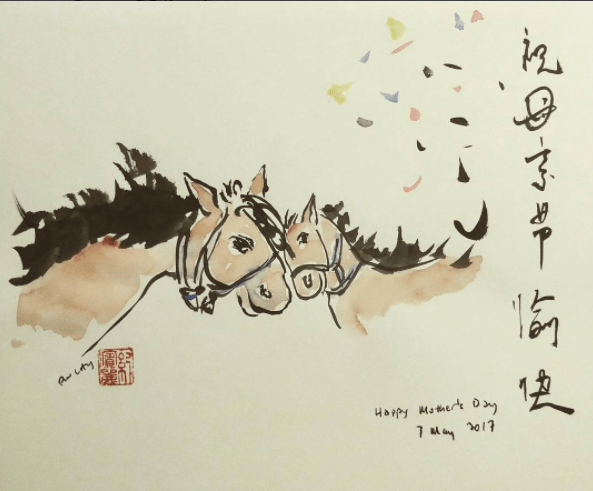 祝母亲节愉快
Happy Mother's Day
7 May 2017